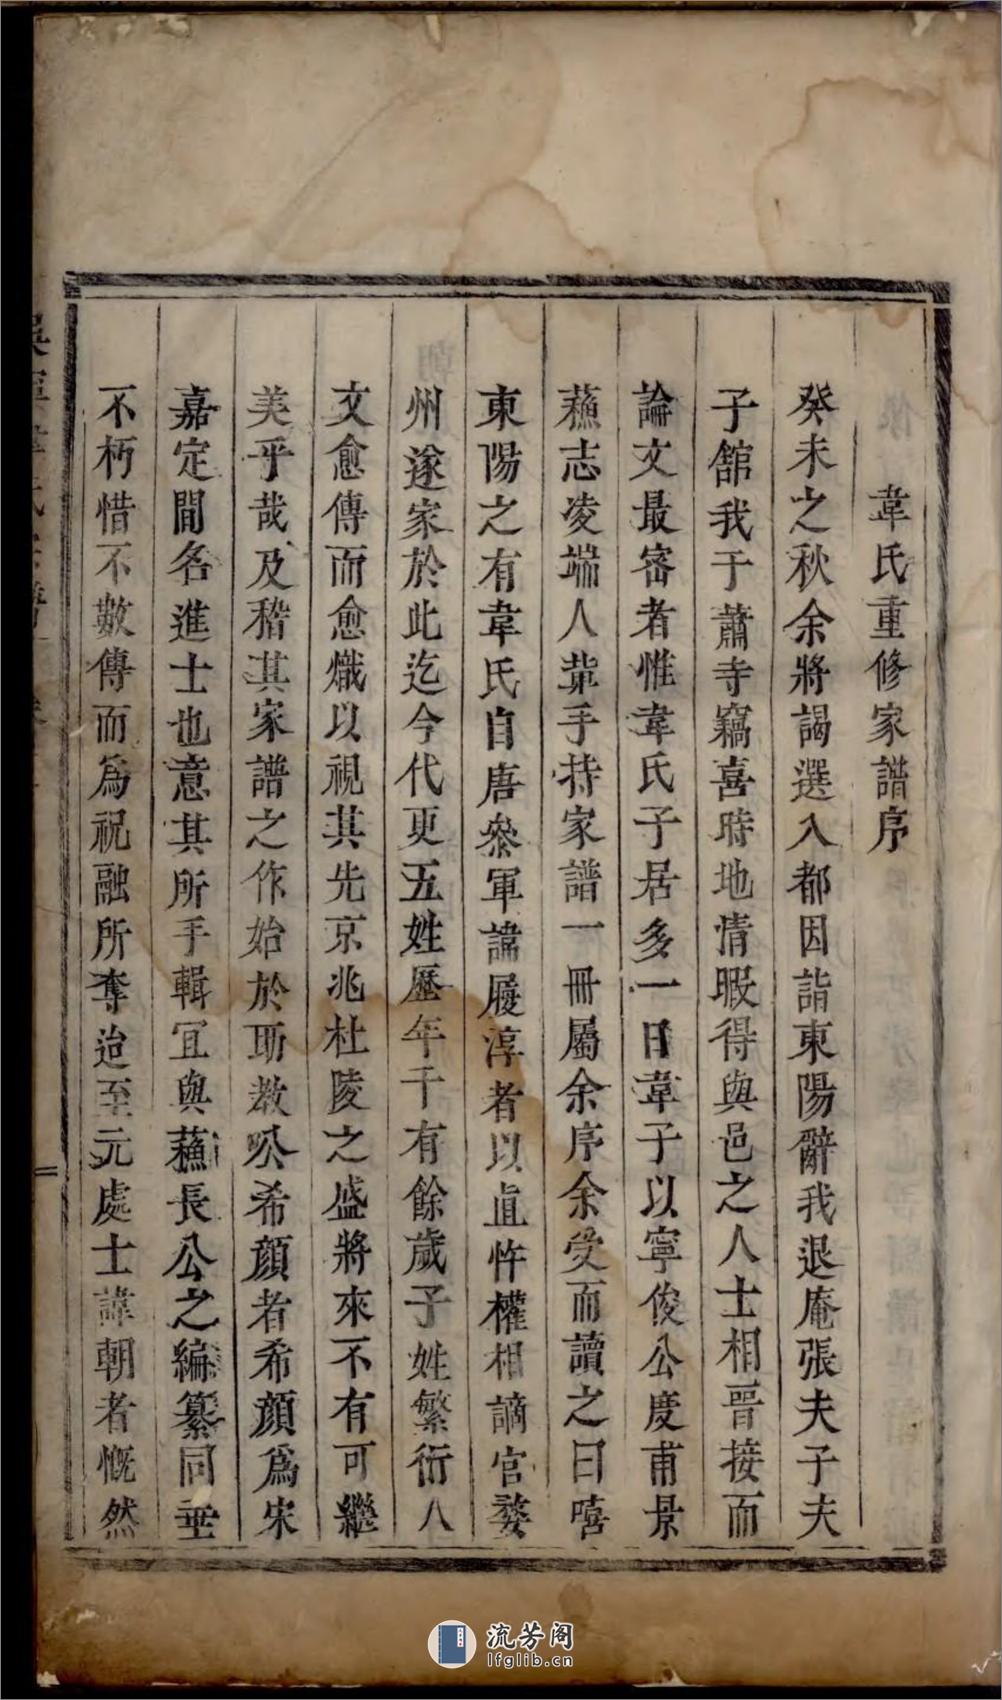 韋氏重修家譜序
癸未之秋余將謁選入都因詣東陽辭我退庵張夫子夫
子舘我于蕭寺竊喜時地情暇得與邑之人士相晉接而
論文最密者惟韋氏子居多一日韋子以寧俊公度甫景
蘓志凌端人軰手持家譜一冊屬余序余受而讀之曰嘻
東陽之有韋氏自唐叅軍諱履淳者以直忤權相謫官婺
州遂家於此迄今代更五姓歷年千有餘歲子姓繁衍人
文愈傳而愈熾以視其先京兆杜陵之盛將來不有可繼
美乎哉及稽其家譜之作始於助教公希顔者希顔爲宋
嘉定間名進士也意其所手輯宜與蘓長公之編纂同垂
不朽惜不數傳而爲祝融所奪迨至元處士諱朝者慨然
流芳阁
lfglib.cn